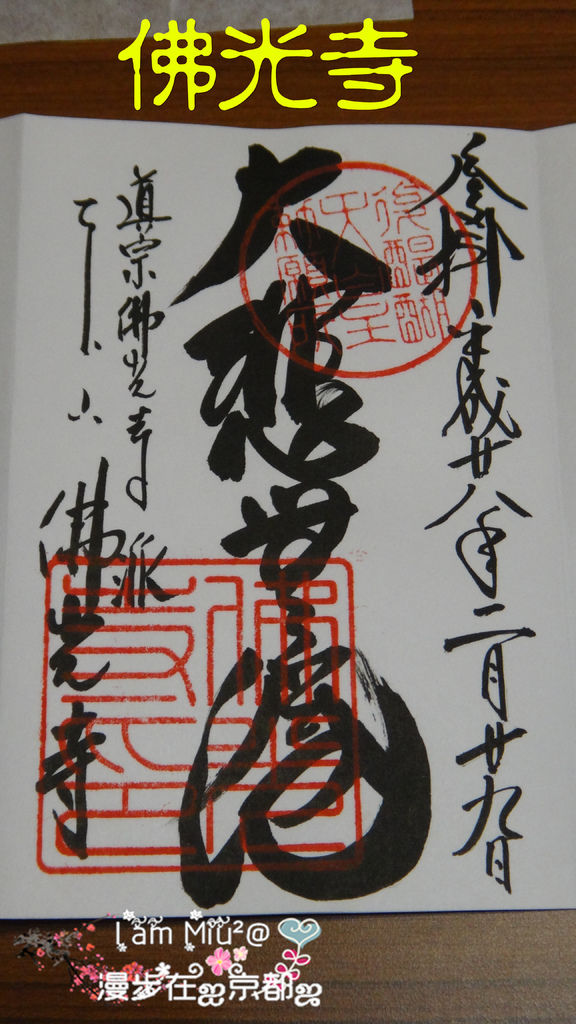 佛光寺
参拝 平成廿八年二月廿九日
後醍醐
天皇
勅願所
大悲
真宗佛光寺派
本山 佛光寺
佛光
寺印
I am Miu²@
漫步在ஐ京都ஐ